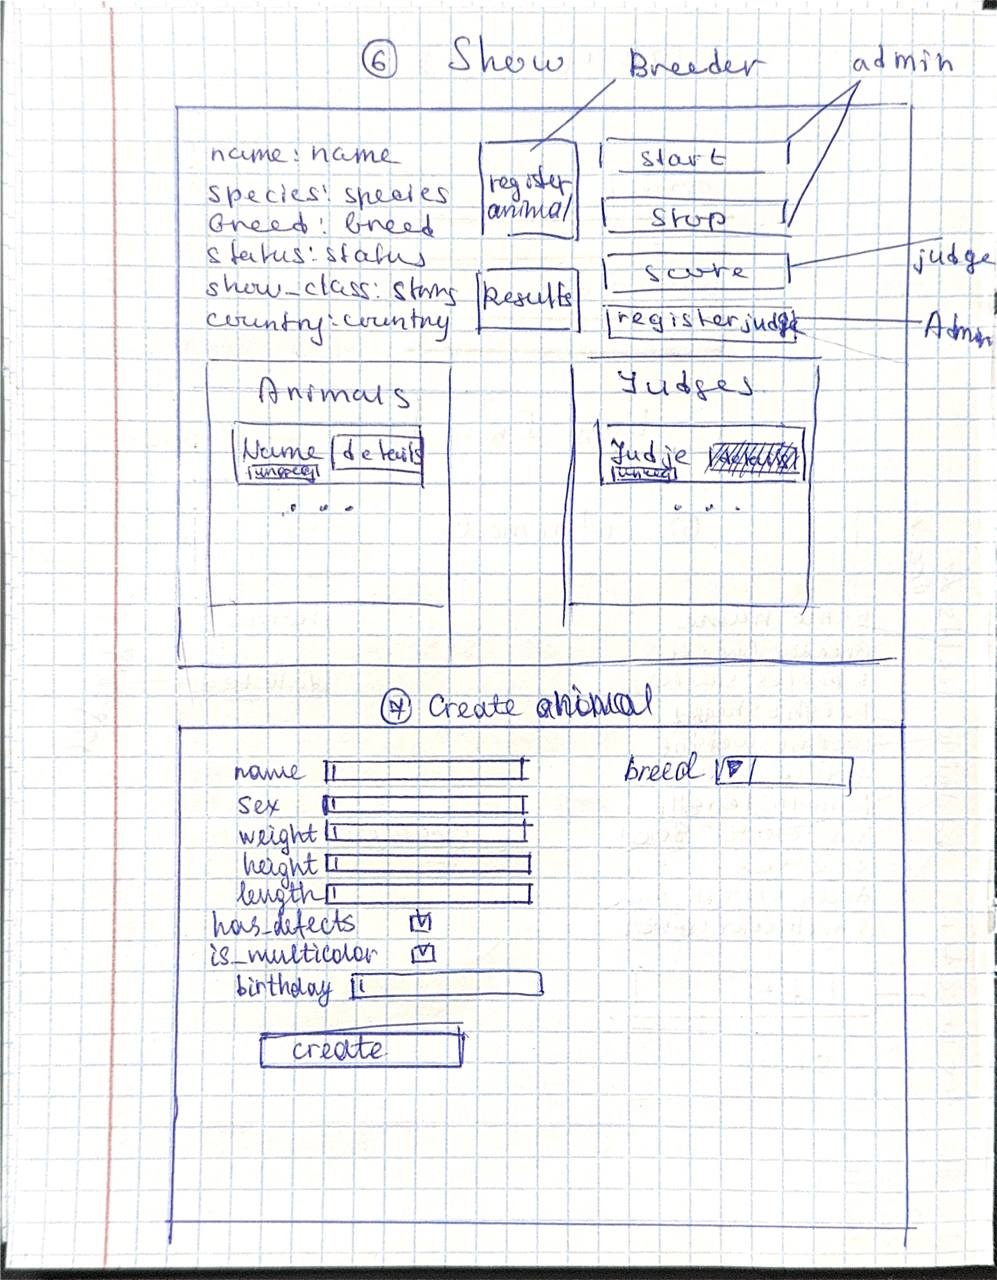 6 Show Breeder admin
name: name
species: species
breed: breed
status: status
show_class:
country: country
register
animal
Results
start
stop
score
register judge
judge
Admin
Animals
Name details
unreg
...
Judges
Judje
unreg
...
7 Create animal
name
sex
weight
height
length
has_defects
is_multicolor
birthday
create
breed